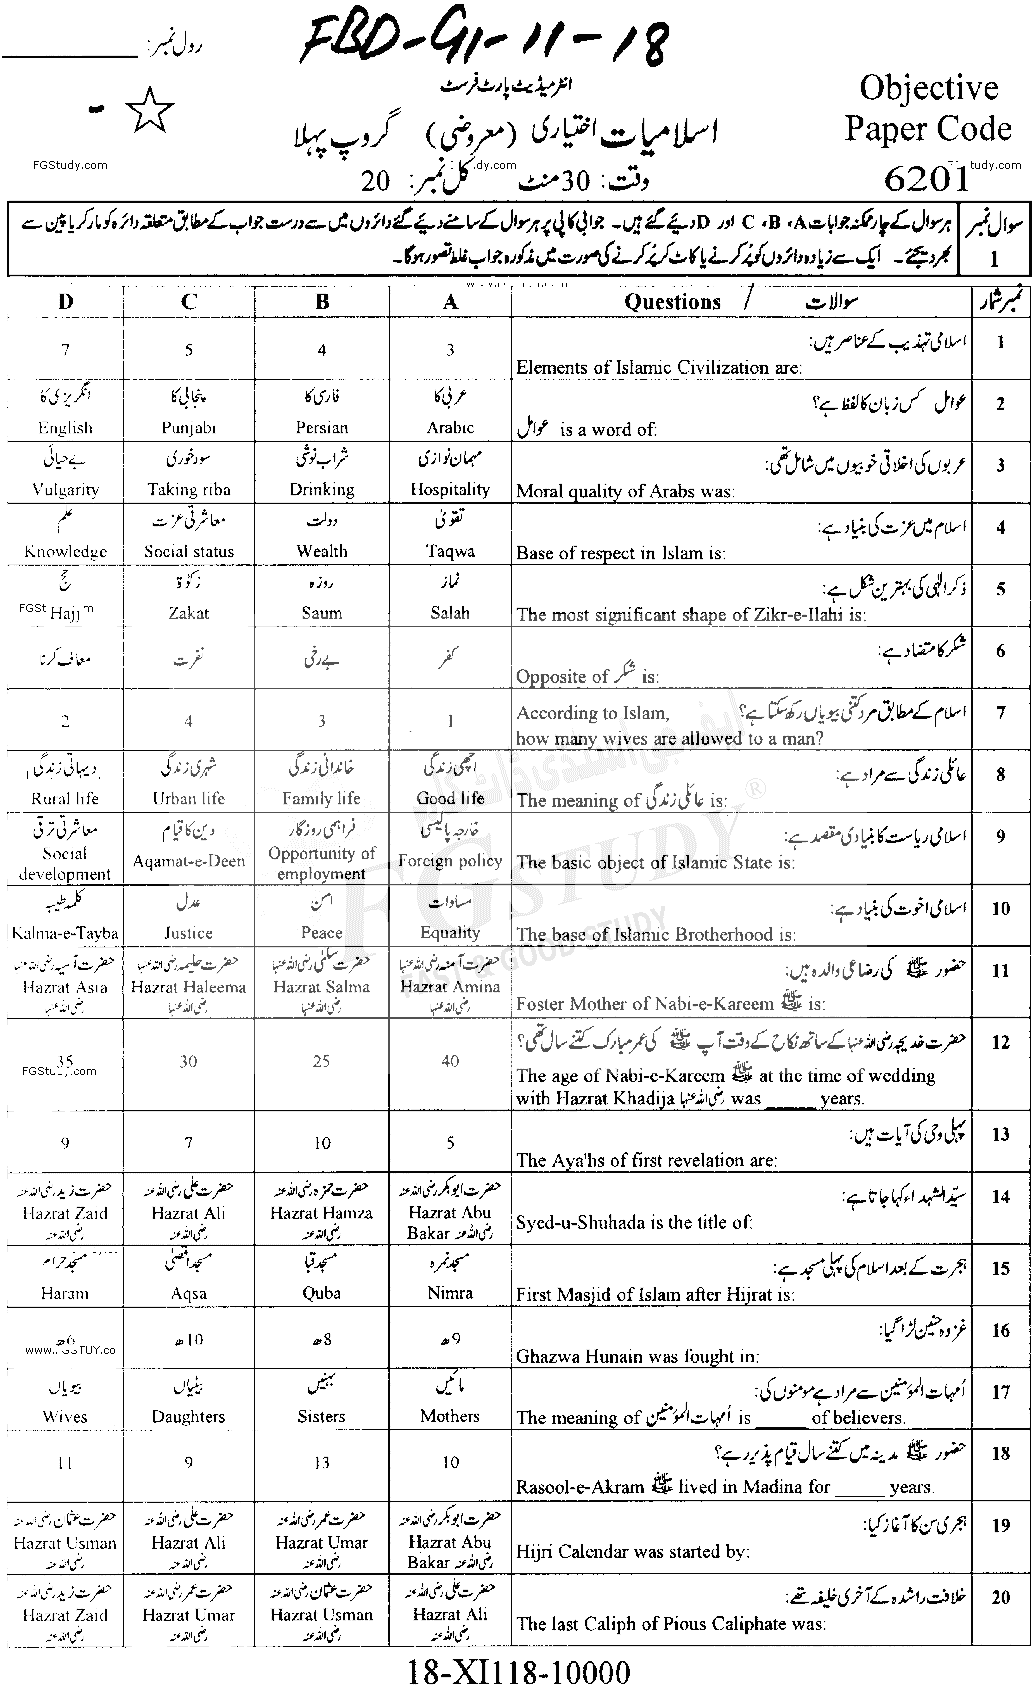 رول نمبر:
FBD-G1-11-18
انٹرمیڈیٹ پارٹ فرسٹ
Objective
Paper Code
6201
اسلامیات اختیاری (معروضی) گروپ پہلا
وقت: 30 منٹ کل نمبر: 20
FGStudy.com
سوال نمبر 1
ہر سوال کے چار ممکنہ جوابات A، B، C اور D دیئے گئے ہیں۔ جوابی کاپی پر ہر سوال کے سامنے دیئے گئے دائروں میں سے درست جواب کے مطابق متعلقہ دائرہ کو مارکر یا پین سے
بھر دیجئے۔ ایک سے زیادہ دائروں کو پُر کرنے یا کاٹ کر پُر کرنے کی صورت میں مذکورہ جواب غلط تصور ہوگا۔
D C B A Questions / سوالات نمبر شمار
1 اسلامی تہذیب کے عناصر ہیں:
Elements of Islamic Civilization are:
7 5 4 3
2 عوامل کس زبان کا لفظ ہے؟
عوامل is a word of:
انگریزی کا پنجابی کا فارسی کا عربی کا
English Punjabi Persian Arabic
3 عربوں کی اخلاقی خوبیوں میں شامل تھی:
Moral quality of Arabs was:
بے حیائی سود خوری شراب نوشی مہمان نوازی
Vulgarity Taking riba Drinking Hospitality
4 اسلام میں عزت کی بنیاد ہے:
Base of respect in Islam is:
علم معاشرتی عزت دولت تقویٰ
Knowledge Social status Wealth Taqwa
5 ذکر الٰہی کی بہترین شکل ہے:
The most significant shape of Zikr-e-Ilahi is:
حج زکوٰۃ روزہ نماز
Hajj Zakat Saum Salah
6 شکر کا متضاد ہے:
Opposite of شکر is:
معاف کرنا نفرت بے رخی کفر
7 اسلام کے مطابق مرد کتنی بیویاں رکھ سکتا ہے؟
According to Islam,
how many wives are allowed to a man?
2 4 3 1
8 عائلی زندگی سے مراد ہے:
The meaning of عائلی زندگی is:
دیہاتی زندگی شہری زندگی خاندانی زندگی اچھی زندگی
Rural life Urban life Family life Good life
9 اسلامی ریاست کا بنیادی مقصد ہے:
The basic object of Islamic State is:
معاشرتی ترقی دین کا قیام فراہمی روزگار خارجہ پالیسی
Social development Aqamat-e-Deen Opportunity of employment Foreign policy
10 اسلامی اخوت کی بنیاد ہے:
The base of Islamic Brotherhood is:
کلمہ طیبہ عدل امن مساوات
Kalma-e-Tayba Justice Peace Equality
11 حضور ﷺ کی رضاعی والدہ ہیں:
Foster Mother of Nabi-e-Kareem ﷺ is:
حضرت آسیہ رضی اللہ عنہا حضرت حلیمہ رضی اللہ عنہا حضرت سلمٰی رضی اللہ عنہا حضرت آمنہ رضی اللہ عنہا
Hazrat Asia رضی اللہ عنہا Hazrat Haleema رضی اللہ عنہا Hazrat Salma رضی اللہ عنہا Hazrat Amina رضی اللہ عنہا
12 حضرت خدیجہ رضی اللہ عنہا کے ساتھ نکاح کے وقت آپ ﷺ کی عمر مبارک کتنے سال تھی؟
The age of Nabi-e-Kareem ﷺ at the time of wedding
with Hazrat Khadija رضی اللہ عنہا was _____ years.
35 30 25 40
FGStudy.com
13 پہلی وحی کی آیات ہیں:
The Aya'hs of first revelation are:
9 7 10 5
14 سیّد الشہداء کہا جاتا ہے:
Syed-u-Shuhada is the title of:
حضرت زید رضی اللہ عنہ حضرت علی رضی اللہ عنہ حضرت حمزہ رضی اللہ عنہ حضرت ابوبکر رضی اللہ عنہ
Hazrat Zaid رضی اللہ عنہ Hazrat Ali رضی اللہ عنہ Hazrat Hamza رضی اللہ عنہ Hazrat Abu Bakar رضی اللہ عنہ
15 ہجرت کے بعد اسلام کی پہلی مسجد ہے:
First Masjid of Islam after Hijrat is:
مسجد حرام مسجد اقصٰی مسجد قبا مسجد نمرہ
Haram Aqsa Quba Nimra
16 غزوہ حنین لڑا گیا:
Ghazwa Hunain was fought in:
6ھ 10ھ 8ھ 9ھ
17 اُمہات المؤمنین سے مراد ہے مومنوں کی:
The meaning of اُمہات المؤمنین is _____ of believers.
بیویاں بیٹیاں بہنیں مائیں
Wives Daughters Sisters Mothers
18 حضور ﷺ مدینہ میں کتنے سال قیام پذیر رہے؟
Rasool-e-Akram ﷺ lived in Madina for _____ years.
11 9 13 10
19 ہجری سن کا آغاز کیا:
Hijri Calendar was started by:
حضرت عثمان رضی اللہ عنہ حضرت علی رضی اللہ عنہ حضرت عمر رضی اللہ عنہ حضرت ابوبکر رضی اللہ عنہ
Hazrat Usman رضی اللہ عنہ Hazrat Ali رضی اللہ عنہ Hazrat Umar رضی اللہ عنہ Hazrat Abu Bakar رضی اللہ عنہ
20 خلافت راشدہ کے آخری خلیفہ تھے:
The last Caliph of Pious Caliphate was:
حضرت زید رضی اللہ عنہ حضرت عمر رضی اللہ عنہ حضرت عثمان رضی اللہ عنہ حضرت علی رضی اللہ عنہ
Hazrat Zaid رضی اللہ عنہ Hazrat Umar رضی اللہ عنہ Hazrat Usman رضی اللہ عنہ Hazrat Ali رضی اللہ عنہ
18-XI118-10000